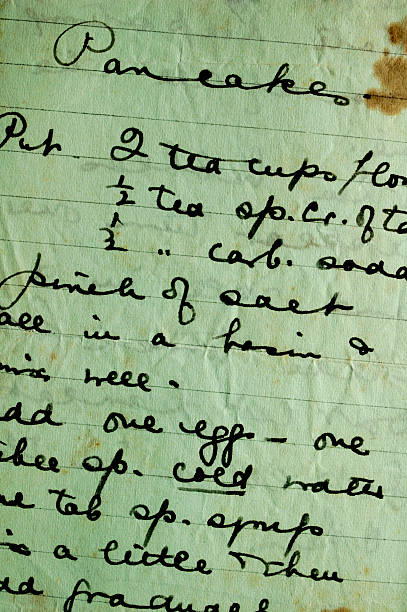 Pancakes.
Put 2 tea cups flou
1/2 tea sp. Cr. of ta
1/2 " carb. soda
pinch of salt
all in a basin &
mix well.
dd one egg - one
sp. cold water
ne tab sp. syrup
a little & then
dd gradual